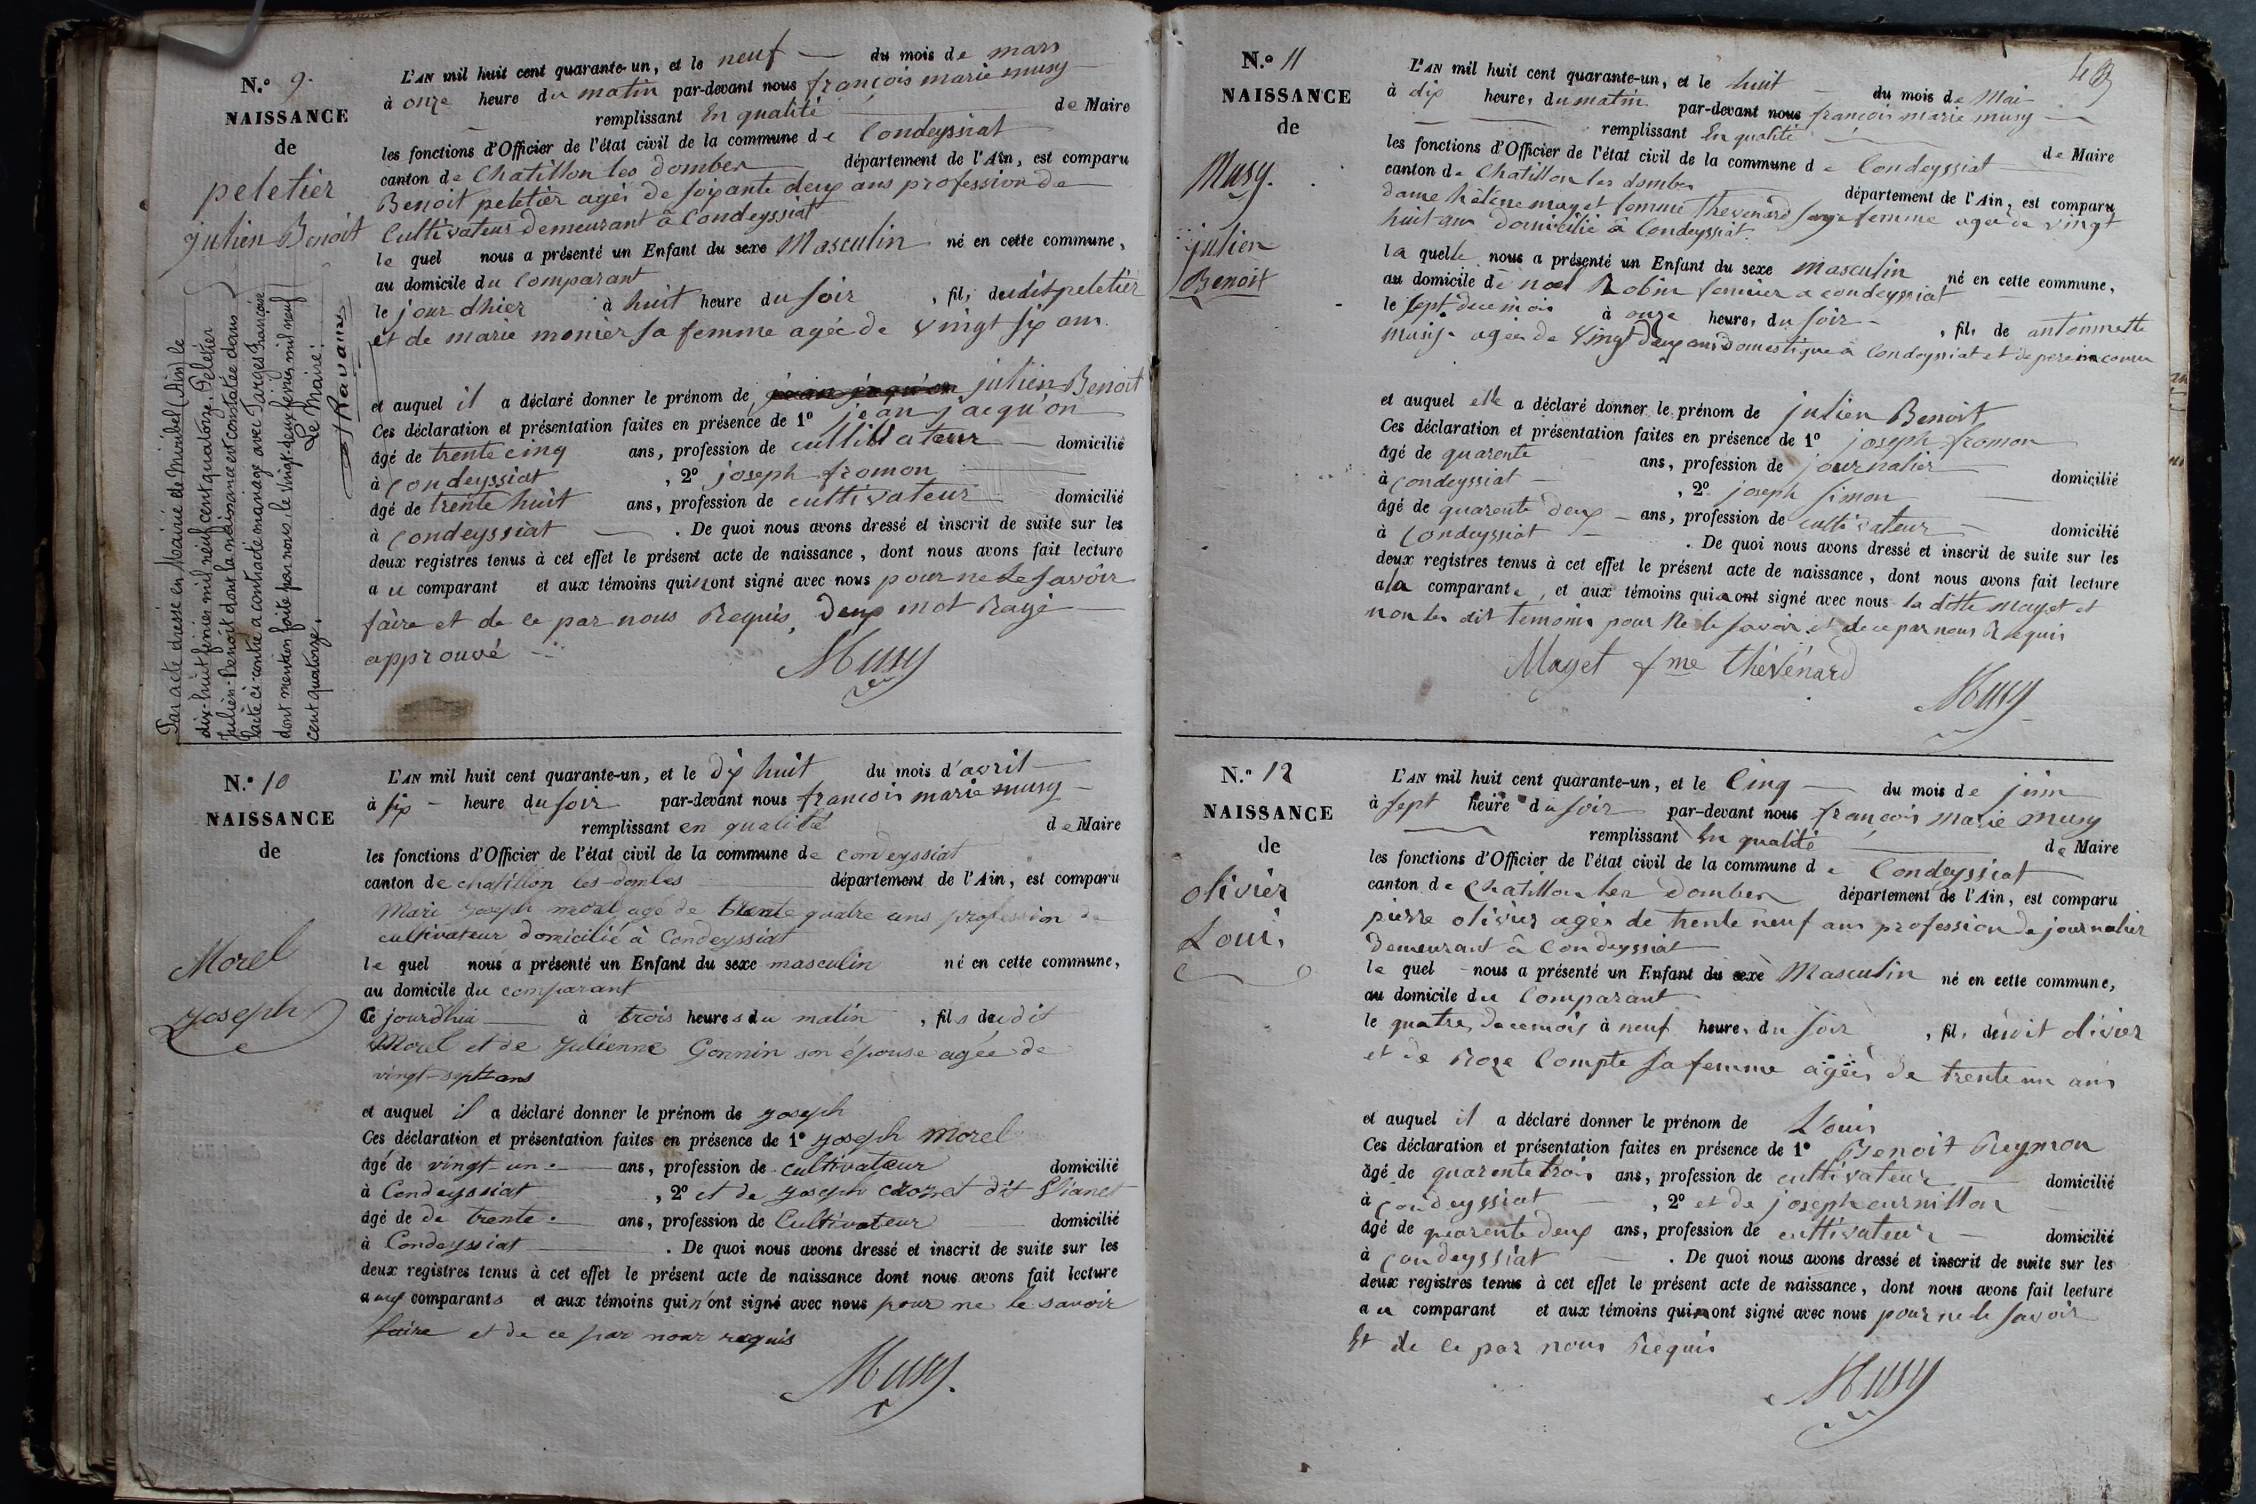 N.° 9.
NAISSANCE
de
peletier
julien Benoit
Par acte dressé en Mairie de Miribel (Ain) le
dix-huit février mil neuf cent quatorze, Peletier
Julien-Benoit dont la naissance est constatée dans
l'acte ci-contre a contracté mariage avec Farges Francoise
dont mention faite par nous, le vingt-deux février mil neuf
cent quatorze. Le Maire:
L'AN mil huit cent quarante-un, et le neuf du mois de mars
à onze heure du matin par-devant nous françois marie musy
remplissant En qualité de Maire
les fonctions d'Officier de l'état civil de la commune de Condeyssiat
canton de Chatillon les domber département de l'Ain, est comparu
Benoit peletier agés de soixante deux ans profession de
Cultivateur demeurant à Condeyssiat
le quel nous a présenté un Enfant du sexe Masculin né en cette commune,
au domicile du Comparant
le jour dhier à huit heure du soir, fils dudit peletier
et de marie monier sa femme agée de vingt six ans
et auquel il a déclaré donner le prénom de jean jaqu'on julien Benoit
Ces déclaration et présentation faites en présence de 1° jean jacqu'on
âgé de trente cinq ans, profession de cultivateur domicilié
à Condeyssiat, 2° joseph fromon
âgé de trente huit ans, profession de cultivateur domicilié
à Condeyssiat. De quoi nous avons dressé et inscrit de suite sur les
deux registres tenus à cet effet le présent acte de naissance, dont nous avons fait lecture
au comparant et aux témoins qui n'ont signé avec nous pour ne le savoir
faire et de ce par nous Requis, deux mot Rayé
approuvé
Musy
N.° 10
NAISSANCE
de
Morel
Joseph
L'AN mil huit cent quarante-un, et le dix huit du mois d'avril
à six heure du soir par-devant nous françois marie musy
remplissant en qualité de Maire
les fonctions d'Officier de l'état civil de la commune de Condeyssiat
canton de chatillon les dombes département de l'Ain, est comparu
Mari Joseph morel agé de trente quatre ans profession de
cultivateur domicilié à Condeyssiat
le quel nous a présenté un Enfant du sexe masculin né en cette commune,
au domicile du comparant
Ce jourdhui à trois heures du matin, fils dudit
Morel et de Julienne Gonnin son épouse agée de
vingt-sept ans
et auquel il a déclaré donner le prénom de Joseph
Ces déclaration et présentation faites en présence de 1° Joseph Morel
âgé de vingt-un ans, profession de cultivateur domicilié
à Condeyssiat, 2° et de Joseph crozet dit Vianet
âgé de de trente ans, profession de Cultivateur domicilié
à Condeyssiat. De quoi nous avons dressé et inscrit de suite sur les
deux registres tenus à cet effet le présent acte de naissance dont nous avons fait lecture
aux comparants et aux témoins qui n'ont signé avec nous pour ne le savoir
faire et de ce par nous requis
Musy.
N.° 11
NAISSANCE
de
Musy.
julien
Benoit
L'AN mil huit cent quarante-un, et le huit du mois de Mai
à dix heure, du matin par-devant nous françois marie musy
remplissant En qualité de Maire
les fonctions d'Officier de l'état civil de la commune de Condeyssiat
canton de Chatillon les domber département de l'Ain, est comparu
dame hélène mayet femme Thevenard sage femme agée de vingt
huit ans domicilié à Condeyssiat
la quelle nous a présenté un Enfant du sexe masculin né en cette commune,
au domicile de noel Robin fermier a condeyssiat
le sept de ce mois à onze heure, du soir, fils de antoinette
musy agée de vingt deux ans domestique à Condeyssiat et de pere inconnu
et auquel elle a déclaré donner le prénom de julien Benoit
Ces déclaration et présentation faites en présence de 1° joseph fromon
âgé de quarente ans, profession de journalier domicilié
à Condeyssiat, 2° joseph simon
âgé de quarente deux ans, profession de cultivateur domicilié
à Condeyssiat. De quoi nous avons dressé et inscrit de suite sur les
deux registres tenus à cet effet le présent acte de naissance, dont nous avons fait lecture
a la comparante, et aux témoins qui ont signé avec nous la ditte mayet et
non les dit temoins pour Ne le savoir et de ce par nous Requis
Mayet fme thévénard
Musy
N.° 12
NAISSANCE
de
olivier
Louis
L'AN mil huit cent quarante-un, et le Cinq du mois de juin
à sept heure du soir par-devant nous françois Marie Musy
remplissant En qualité de Maire
les fonctions d'Officier de l'état civil de la commune de Condeyssiat
canton de Chatillon les Domber département de l'Ain, est comparu
pierre olivier agés de trente neuf ans profession de journalier
demeurant à Condeyssiat
le quel nous a présenté un Enfant du sexe Masculin né en cette commune,
au domicile du Comparant
le quatre, de ce mois à neuf heure, du soir, fils dudit olivier
et de Roze Compte sa femme agées de trente un ans
et auquel il a déclaré donner le prénom de Louis
Ces déclaration et présentation faites en présence de 1° Benoit Reymon
âgé de quarente trois ans, profession de cultivateur domicilié
à Condeyssiat, 2° et de joseph curnillon
âgé de quarente deux ans, profession de cultivateur domicilié
à Condeyssiat. De quoi nous avons dressé et inscrit de suite sur les
deux registres tenus à cet effet le présent acte de naissance, dont nous avons fait lecture
au comparant et aux témoins qui n'ont signé avec nous pour ne le savoir
Et de ce par nous Requis
Musy